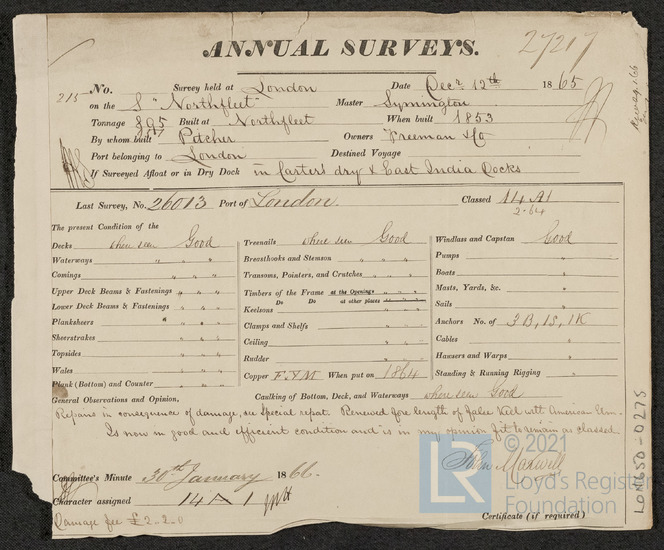 ANNUAL SURVEYS.
27217
215 No. Survey held at London Date Decr 12th 1865
on the S "Northfleet" Master Symmington
Tonnage 895 Built at Northfleet When built 1853
By whom built Pitcher Owners Freeman & Co
Port belonging to London Destined Voyage
If Surveyed Afloat or in Dry Dock in Carters dry & East India Docks
Last Survey, No. 26013 Port of London. Classed 14 A1
2-64
The present Condition of the
Decks where seen Good
Waterways " " "
Comings " " "
Upper Deck Beams & Fastenings " " "
Lower Deck Beams & Fastenings " " "
Planksheers " " "
Sheerstrakes " " "
Topsides " " "
Wales " " "
Plank (Bottom) and Counter " " "
Treenails where seen Good
Breasthooks and Stemson " " "
Transoms, Pointers, and Crutches " " "
Timbers of the Frame at the Openings " " "
Do Do at other places " " "
Keelsons " " "
Clamps and Shelfs " " "
Ceiling " " "
Rudder " " "
Copper F&M When put on 1864
Windlass and Capstan Good
Pumps "
Boats "
Masts, Yards, &c. "
Sails "
Anchors No. of 3B, 1S, 1K
Cables "
Hawsers and Warps "
Standing & Running Rigging "
General Observations and Opinion, Caulking of Bottom, Deck, and Waterways where seen Good
Repairs in consequence of damage, see Special repot. Renewed fore length of False Keel with American Elm.
Is now in good and efficient condition and is in my opinion fit to remain as classed.
John Maxwell
Committee's Minute 30th January 1866.
Character assigned 14 A 1
Damage fee £2-2-0
Certificate (if required)
LON650-0275
© 2021
LR
Lloyd's Register
Foundation